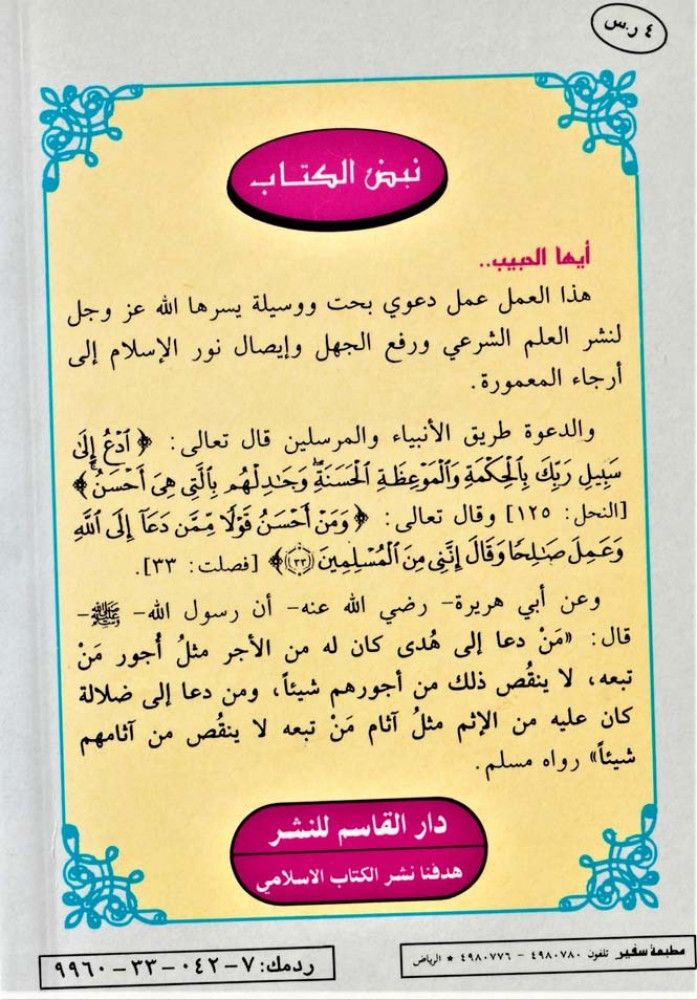 ٤ ر.س
نبض الكتاب
أيها الحبيب..
هذا العمل عمل دعوي بحت ووسيلة يسرها الله عز وجل
لنشر العلم الشرعي ورفع الجهل وإيصال نور الإسلام إلى
أرجاء المعمورة.
والدعوة طريق الأنبياء والمرسلين قال تعالى: ﴿ ٱدْعُ إِلَىٰ
سَبِيلِ رَبِّكَ بِٱلْحِكْمَةِ وَٱلْمَوْعِظَةِ ٱلْحَسَنَةِۖ وَجَٰدِلْهُم بِٱلَّتِى هِىَ أَحْسَنُۚ ﴾
[النحل: ١٢٥] وقال تعالى: ﴿ وَمَنْ أَحْسَنُ قَوْلًا مِّمَّن دَعَآ إِلَى ٱللَّهِ
وَعَمِلَ صَٰلِحًا وَقَالَ إِنَّنِى مِنَ ٱلْمُسْلِمِينَ (٣٣) ﴾ [فصلت: ٣٣].
وعن أبي هريرة- رضي الله عنه- أن رسول الله- ﷺ -
قال: «مَنْ دعا إلى هُدى كان له من الأجر مثلُ أُجور مَنْ
تبعه، لا ينقُص ذلك من أجورهم شيئاً، ومن دعا إلى ضلالة
كان عليه من الإثم مثلُ آثام مَنْ تبعه لا ينقُص من آثامهم
شيئاً» رواه مسلم.
دار القاسم للنشر
هدفنا نشر الكتاب الاسلامي
مطبعة سفير تلفون ٤٩٨٠٧٨٠ - ٤٩٨٠٧٧٦ * الرياض
ردمك: ٧-٠٤٢-٣٣-٩٩٦٠